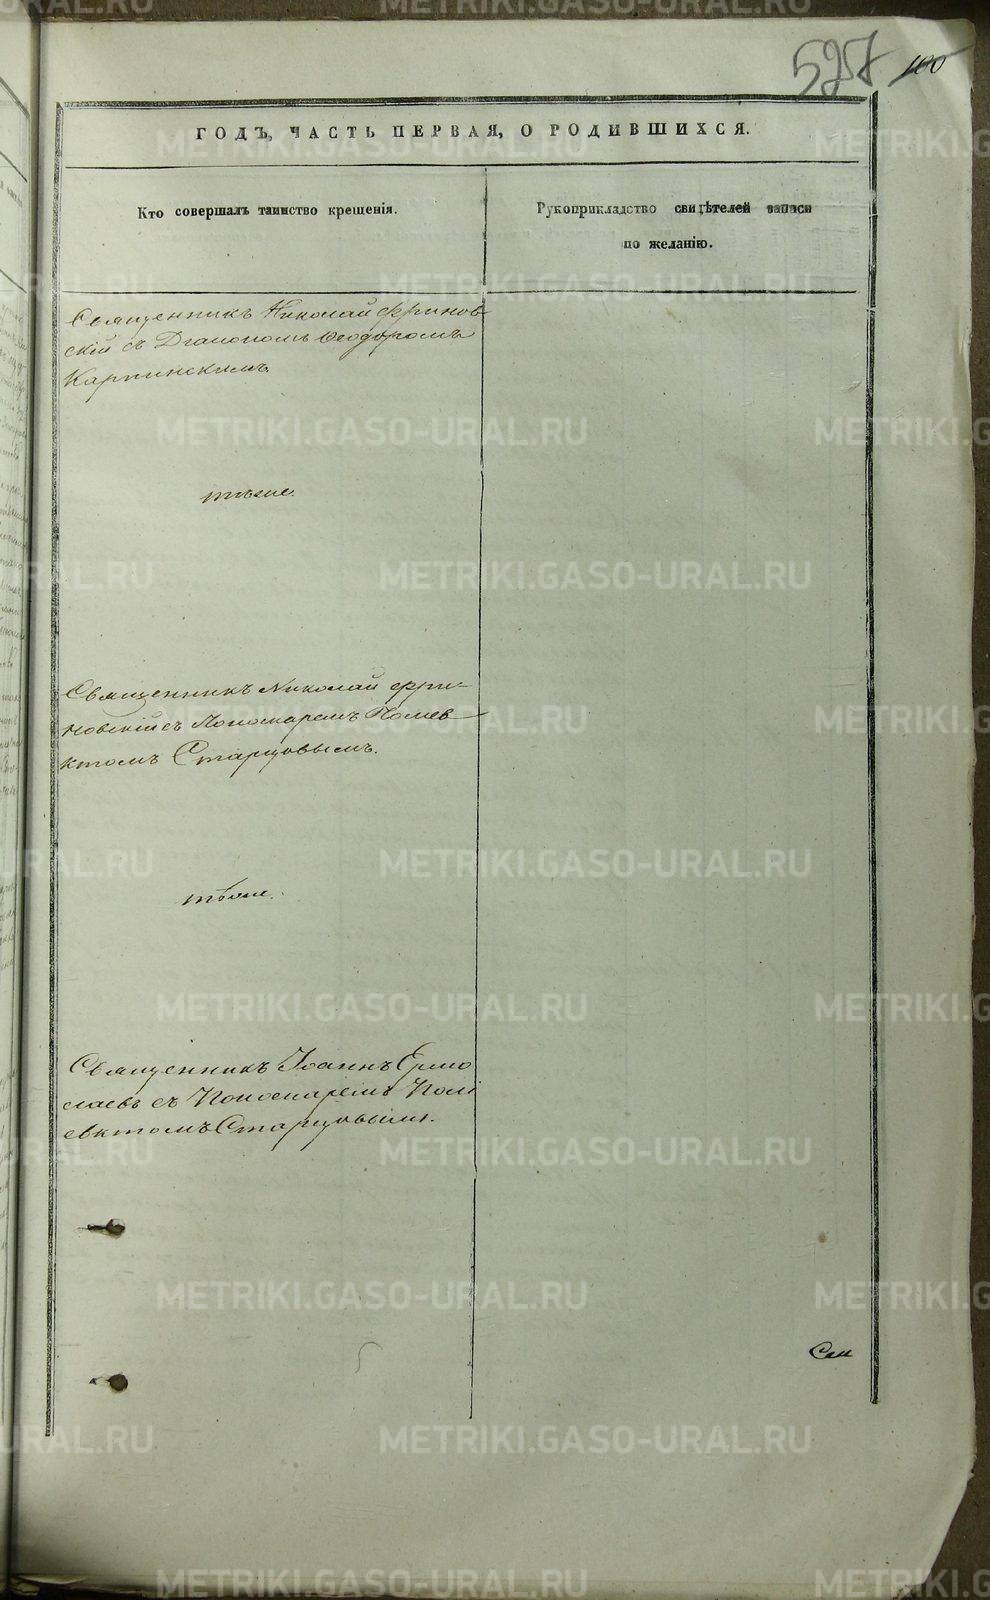 527 100
ГОДЪ, ЧАСТЬ ПЕРВАЯ, О РОДИВШИХСЯ.
Кто совершалъ таинство крещенія.
Рукоприкладство свидѣтелей записи
по желанію.
Священникъ Николай Фринов-
скій съ Діакономъ Ѳеодоромъ
Карпинскимъ
тѣже.
Священникъ Николай Фри-
новскій съ Пономаремъ Полиев-
ктомъ Старцовымъ.
тѣже.
Священникъ Іоаннъ Ермо
лаевъ съ Пономаремъ Полі
евктомъ Старцовымъ.
METRIKI.GASO-URAL.RU